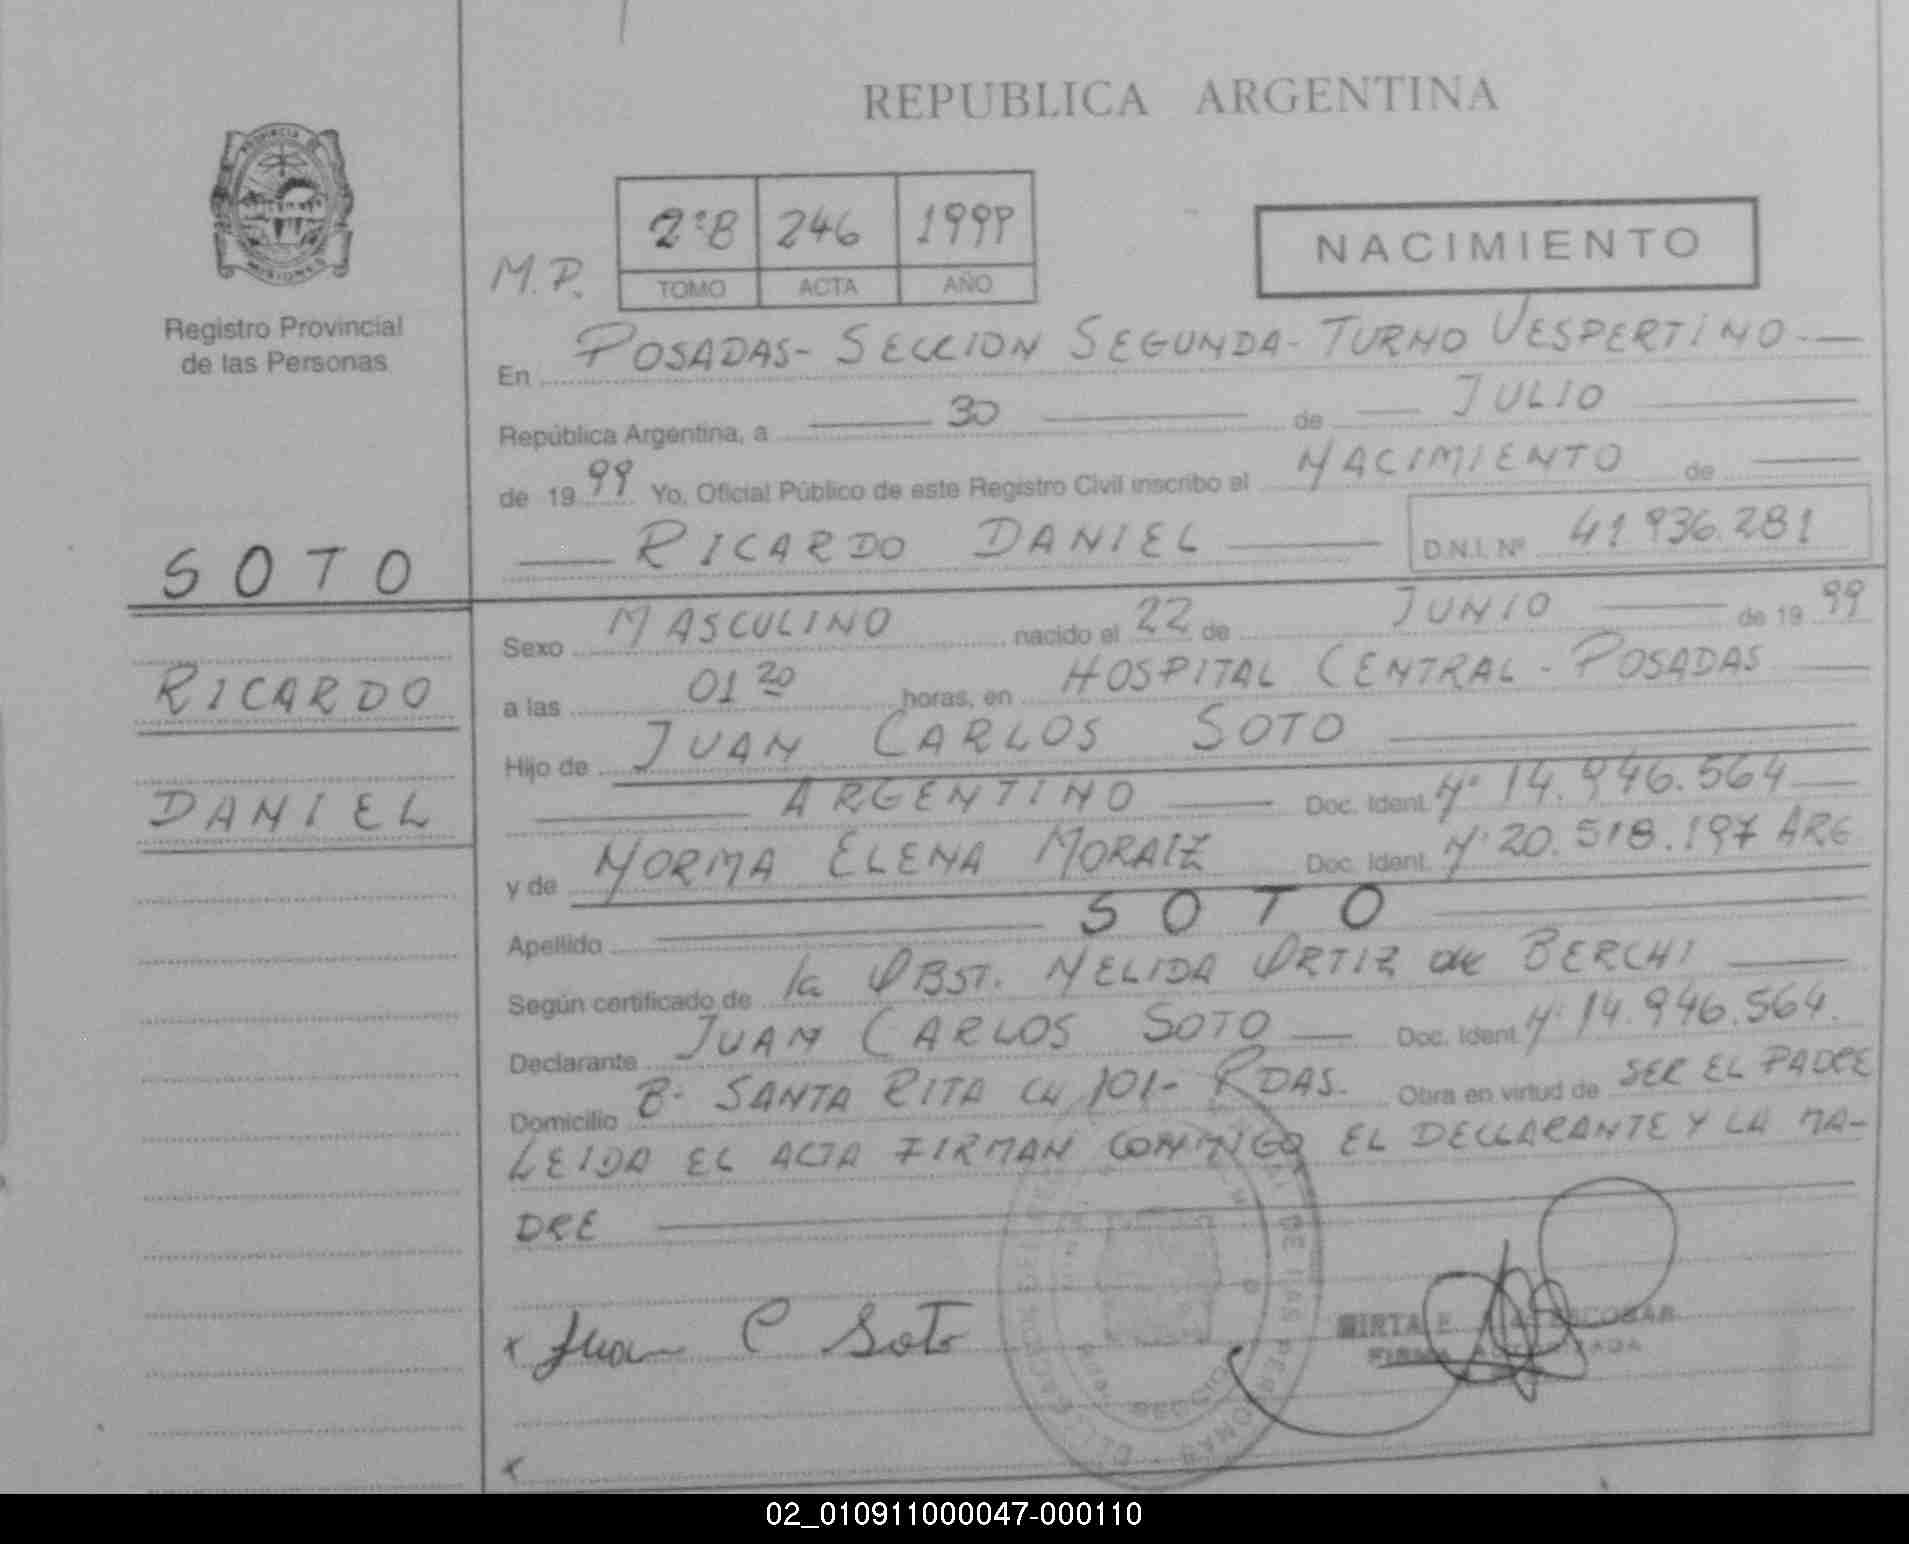 REPUBLICA ARGENTINA
PROVINCIA DE
MISIONES
Registro Provincial
de las Personas
M.P.
2ºB 246 1999
TOMO ACTA AÑO
NACIMIENTO
En POSADAS - SECCION SEGUNDA - TURNO VESPERTINO -
República Argentina, a 30 de JULIO
de 19 99 Yo, Oficial Público de este Registro Civil inscribo el NACIMIENTO de
RICARDO DANIEL D.N.I. Nº 41.936.281
SOTO
RICARDO
DANIEL
Sexo MASCULINO nacido el 22 de JUNIO de 19 99
a las 01 20 horas, en HOSPITAL CENTRAL - POSADAS
Hijo de JUAN CARLOS SOTO
ARGENTINO Doc. Ident. Nº 14.946.564
y de NORMA ELENA MORAIZ Doc. Ident. Nº 20.518.197 ARG
Apellido SOTO
Según certificado de la OBST. NELIDA ORTIZ de BERCHI
Declarante JUAN CARLOS SOTO Doc. Ident. Nº 14.946.564.
Domicilio Bº SANTA RITA CH 101 - RDAS. Obra en virtud de SER EL PADRE
LEIDA EL ACTA FIRMAN CONMIGO EL DECLARANTE Y LA MA-
DRE
x Juan C Soto
MIRTA E ESCOBAR
FIRMA
x
02_010911000047-000110